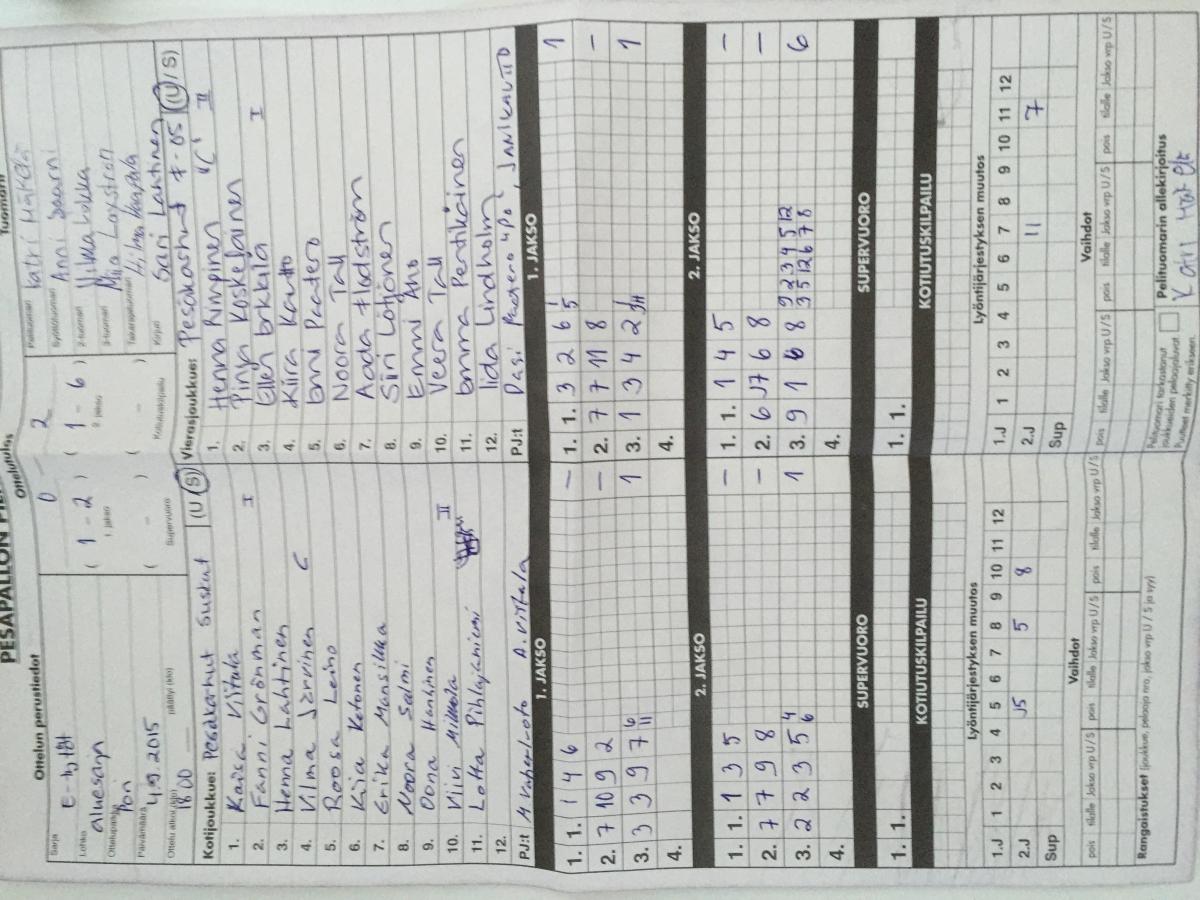 PESÄPALLON
Ottelun perustiedot
Sarja
Lohko aluesarja
Ottelupaikka Pori
Päivämäärä 4.9.2015
Ottelu alkoi (klo) 18.00 päättyi (klo)
Ottelutulos
0 - 2
( 1 - 2 ) ( 1 - 6 )
1. jakso 2. jakso
( - ) ( - )
Supervuoro Kotiutuskilpailu
Tuomarit
Pelituomari Katri Mäkelä
Syöttötuomari Anni Saarni
2-tuomari
3-tuomari
Takarajatuomari
Kirjuri Sari Lahtinen
Kotijoukkue: Pesäkarhut Suskut (U / S)
1. Kaisa Viitala
2. Fanni Grönman I
3. Henna Lahtinen
4. Vilma Järvinen C
5. Roosa Leino
6. Kiia Ketonen
7. Erika Mansikka
8. Noora Salmi
9. Oona Hanhinen
10. Viivi Mikkola II
11. Lotta Pihlajaniemi
12.
PJ:t A. Viitala
Vierasjoukkue: Pesäkarhut F-05 (U / S)
1. Henna Rinpinen "C" II
2. Pinja Koskelainen
3. Ellen Erkkilä I
4. Kiira Kautto
5. Enni Paatero
6. Noora Tall
7. Aada Flodström
8. Siiri Lotjonen
9. Emmi Aho
10. Veera Tall
11. Emma Pentikäinen
12. Iida Lindholm
PJ:t Pasi Paatero "PJ", JANI KAUTTO
1. JAKSO
1. 1. 1 4 6 –
2. 7 10 9 2 –
3. 3 3 9 7 6 11 1
4.
1. JAKSO
1. 1. 3 2 6 5 1
2. 7 7 11 8 –
3. 1 3 4 2 1
4.
2. JAKSO
1. 1. 1 3 5 –
2. 7 7 9 8 –
3. 2 2 3 5 4 6 1
4.
2. JAKSO
1. 1. 1 4 5 –
2. 6 J7 6 8 –
3. 9 1 6 8 9 2 3 4 5 12 3 5 12 6 7 8 6
4.
SUPERVUORO
1. 1.
SUPERVUORO
1. 1.
KOTIUTUSKILPAILU
KOTIUTUSKILPAILU
Lyöntijärjestyksen muutos
1.J 1 2 3 4 5 6 7 8 9 10 11 12
2.J J5 5 8
Sup
Lyöntijärjestyksen muutos
1.J 1 2 3 4 5 6 7 8 9 10 11 12
2.J 11 7
Sup
Vaihdot
pois tilalle Jakso vrp U/S pois tilalle Jakso vrp U/S pois tilalle Jakso vrp U/S
Vaihdot
pois tilalle Jakso vrp U/S pois tilalle Jakso vrp U/S pois tilalle Jakso vrp U/S
Rangaistukset (joukkue, pelaaja nro, jakso vrp U / S ja syy)
Pelituomari tarkastanut joukkueiden pelaajaluvat
Puutteet merkitty erikseen.
Pelituomarin allekirjoitus